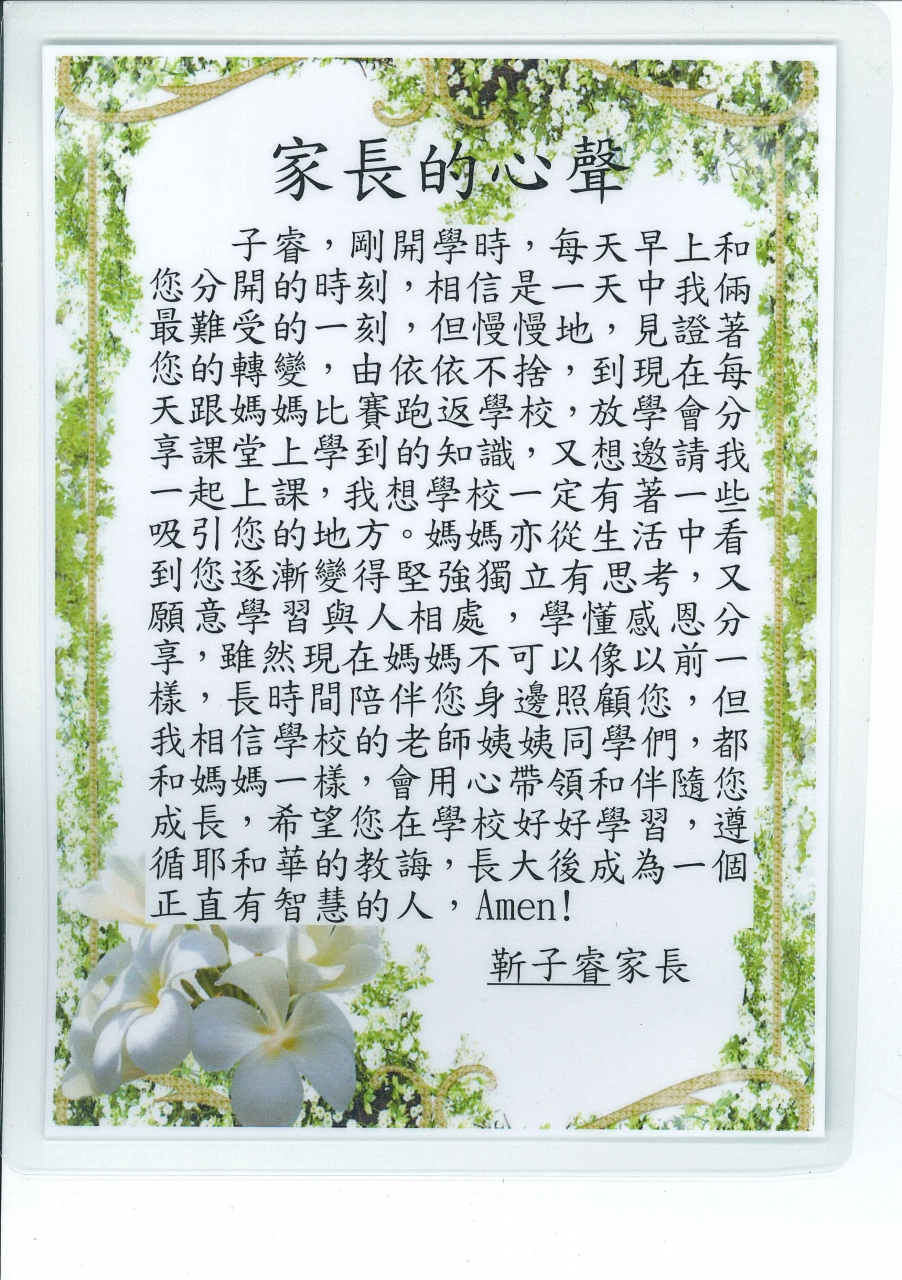 家長的心聲
子睿，剛開學時，每天早上和
您分開的時刻，相信是一天中我倆
最難受的一刻，但慢慢地，見證著
您的轉變，由依依不捨，到現在每
天跟媽媽比賽跑返學校，放學會分
享課堂上學到的知識，又想邀請我
一起上課，我想學校一定有著一些
吸引您的地方。媽媽亦從生活中看
到您逐漸變得堅強獨立有思考，又
願意學習與人相處，學懂感恩分
享，雖然現在媽媽不可以像以前一
樣，長時間陪伴您身邊照顧您，但
我相信學校的老師姨姨同學們，都
和媽媽一樣，會用心帶領和伴隨您
成長，希望您在學校好好學習，遵
循耶和華的教誨，長大後成為一個
正直有智慧的人，Amen!
靳子睿家長